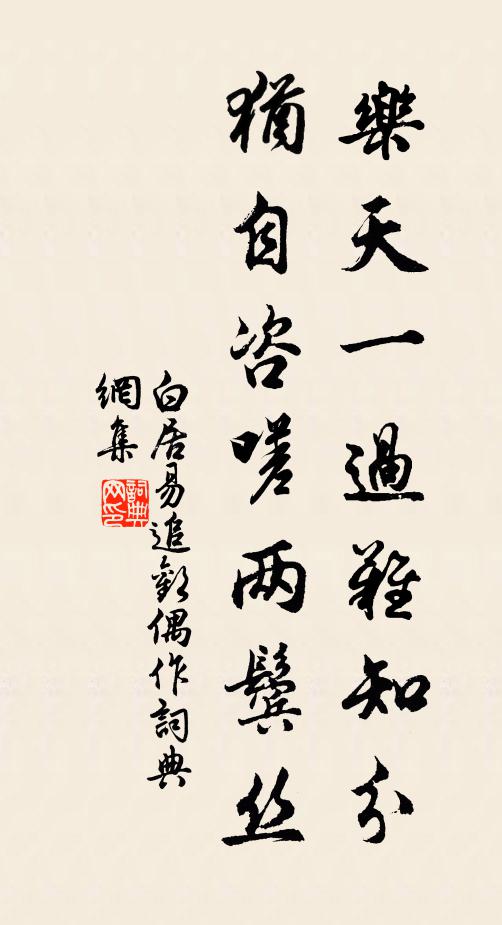 樂天一過難知分
猶自咨嗟两鬢丝
白居易追歡偶作詞典
網集
詞典
网印